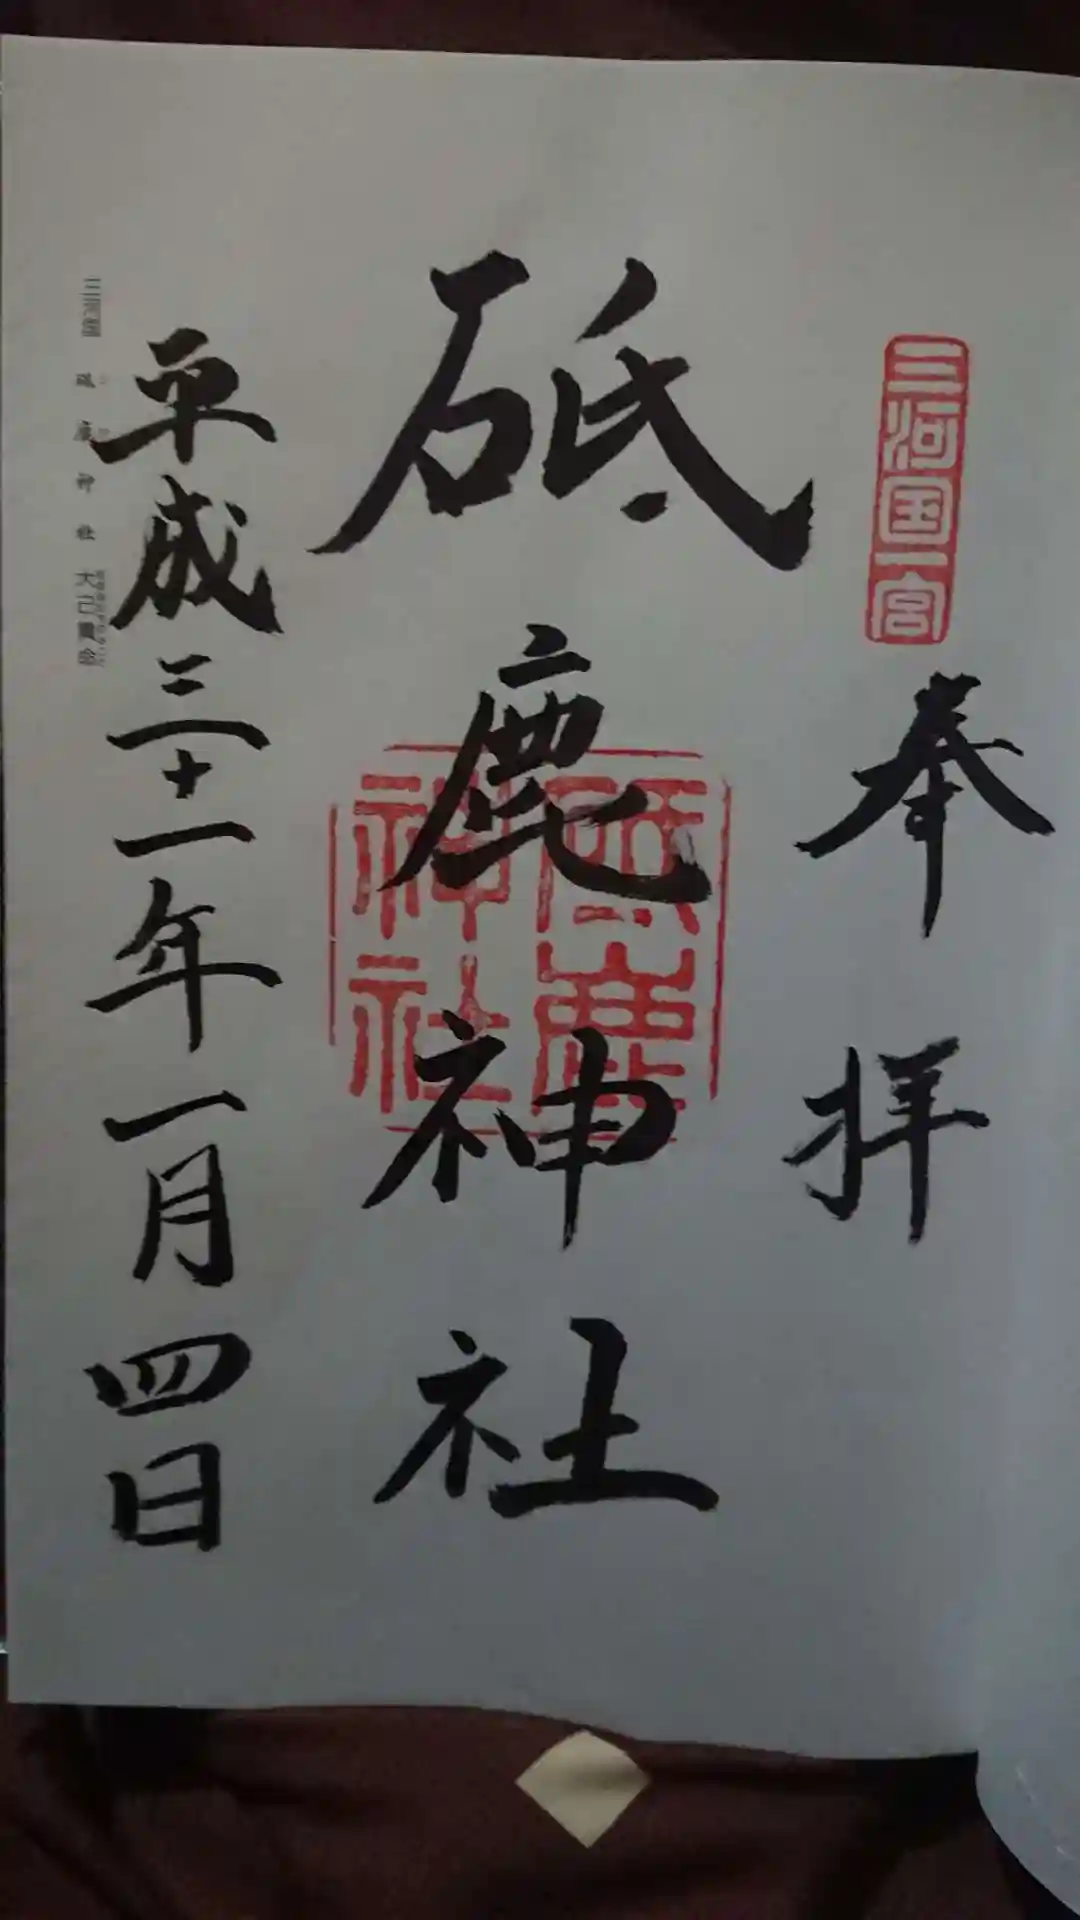 三河国一宮
奉拝
砥鹿神社
砥鹿
神社
平成三十一年一月四日
三河国 砥鹿神社 大己貴命